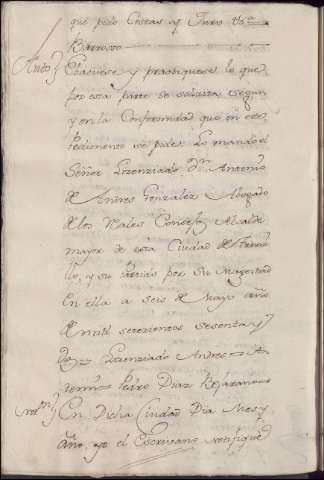 que pido Costas y Juro &a
Barroso
Auto} Evacuese y practiquese lo que
por esta parte se solicita segun
y en la Conformidad que en este
pedimento se pide: Lo mando el
Señor Lizenziado Dn Antonio
de Andres Gonzalez Abogado
de los Reales Consejos Alcalde
mayor de esta Ciudad de Truxi
llo, y su tierra por Su Magestad
En ella a seis de Mayo año
de mill setecientos sesenta y
dos = Lizenziado Andres = An
temi = Pedro Diaz Bejarano =
Not.on} En Dicha Ciudad Dia Mes y
año, yo el Escrivano notifiqué